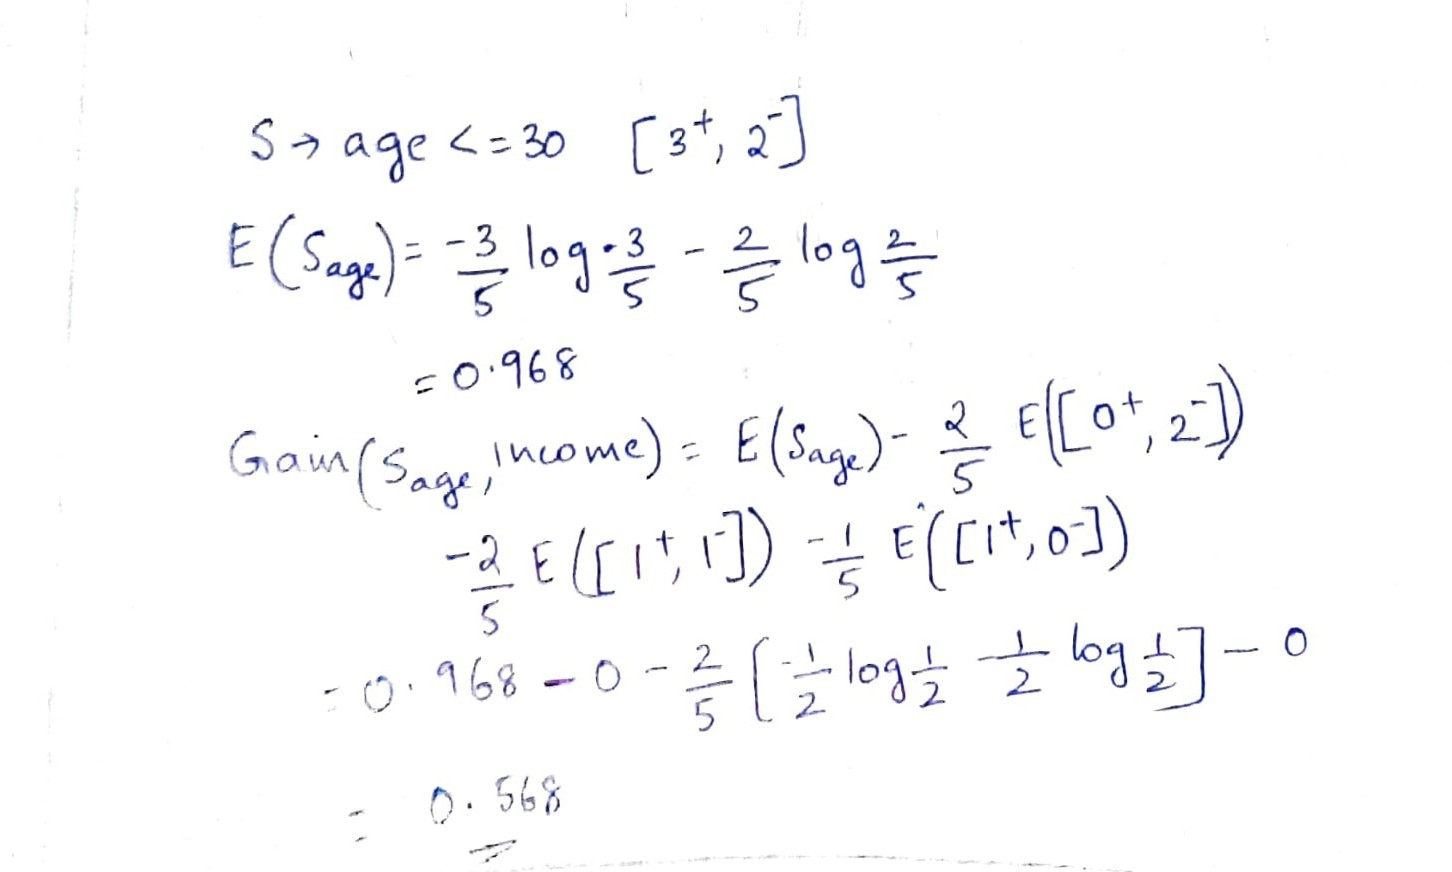 S → age <= 30 [3⁺, 2⁻]
E(S_age) = -3/5 log 3/5 - 2/5 log 2/5
= 0.968
Gain(S_age, Income) = E(S_age) - 2/5 E([0⁺, 2⁻])
-2/5 E([1⁺, 1⁻]) -1/5 E([1⁺, 0⁻])
= 0.968 - 0 - 2/5 [-1/2 log 1/2 - 1/2 log 1/2] - 0
= 0.568